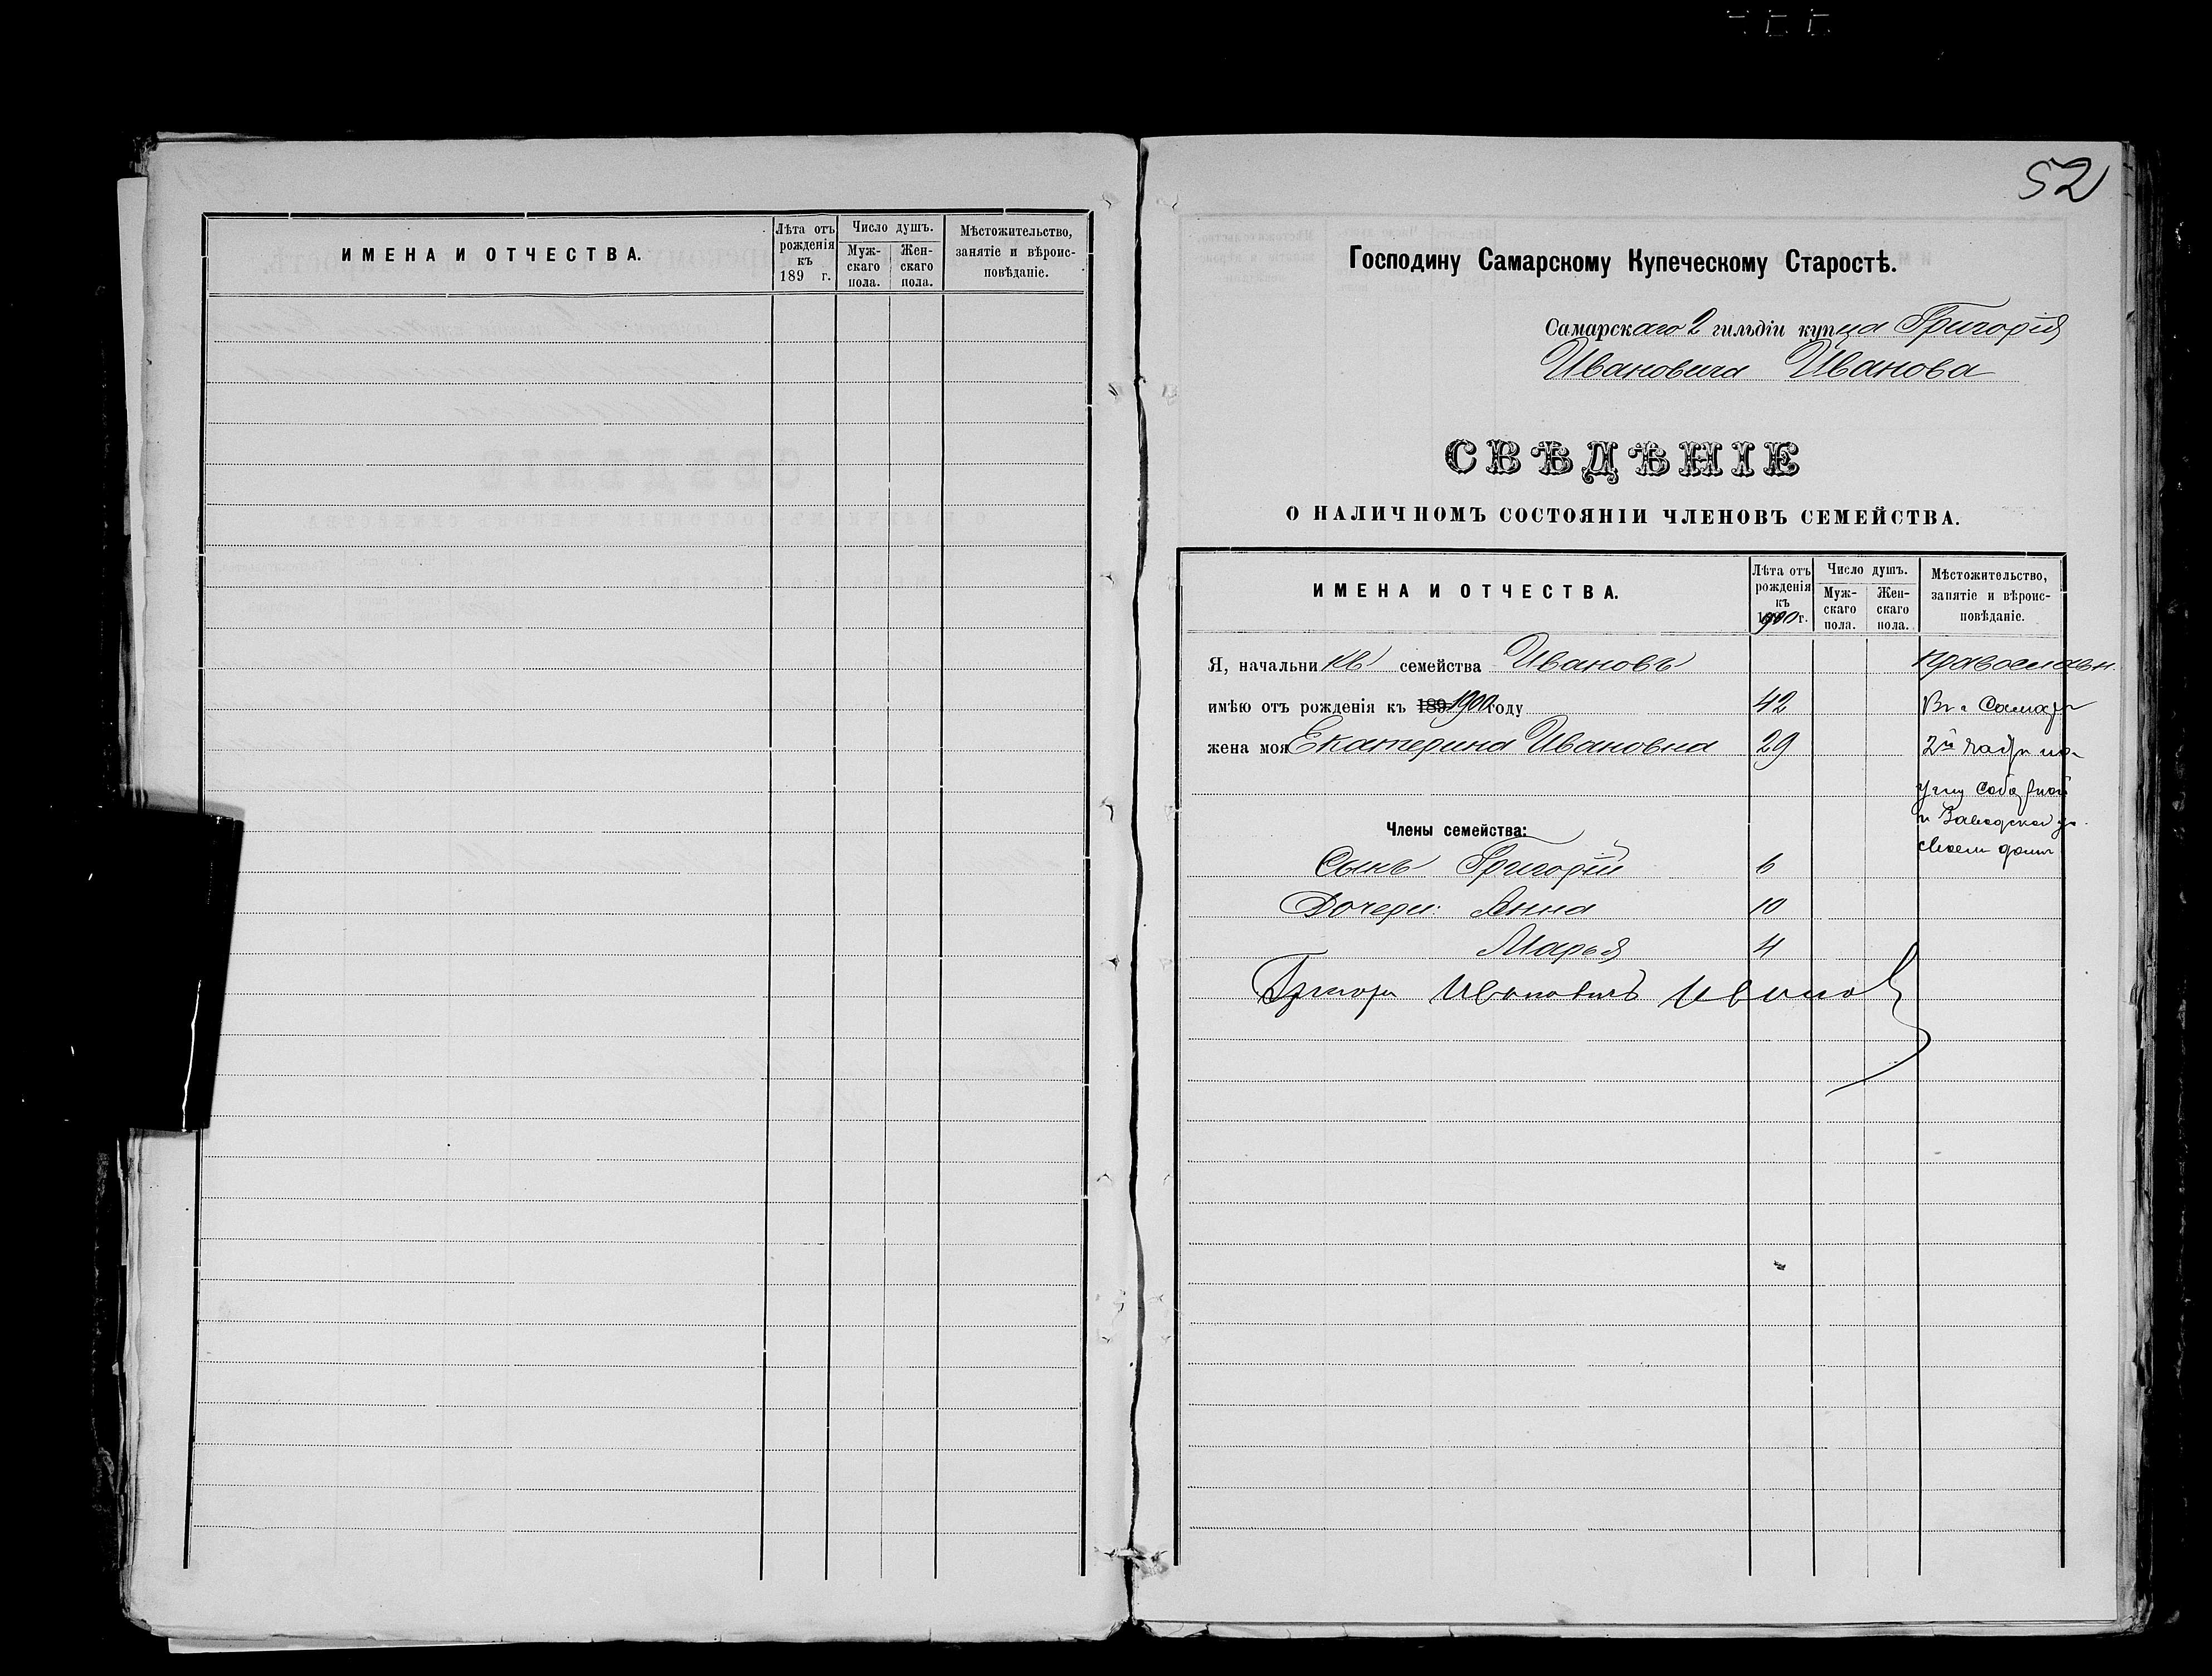 ИМЕНА И ОТЧЕСТВА.
Лѣта отъ рожденія къ 189 г.
Число душъ.
Муж-скаго пола.
Жен-скаго пола.
Мѣстожительство, занятіе и вѣроис-повѣданіе.
52
Господину Самарскому Купеческому Старостѣ.
Самарскаго 2 гильдіи купца Григорія
Ивановича Иванова
СВѢДѢНІЕ
О НАЛИЧНОМЪ СОСТОЯНІИ ЧЛЕНОВЪ СЕМЕЙСТВА.
ИМЕНА И ОТЧЕСТВА.
Лѣта отъ рожденія къ 1900 г.
Число душъ.
Муж-скаго пола.
Жен-скаго пола.
Мѣстожительство, занятіе и вѣроис-повѣданіе.
Я, начальникъ семейства Ивановъ православн.
имѣю отъ рожденія къ 189 1900 году 42 Въ г Самарѣ
жена моя Екатерина Ивановна 29 2й части на
углу Соборной
Члены семейства: и Заводской ул.
своем домѣ
Сынъ Григорій 6
Дочери: Анна 10
Марья 4
Григори Ивановичъ Иванов